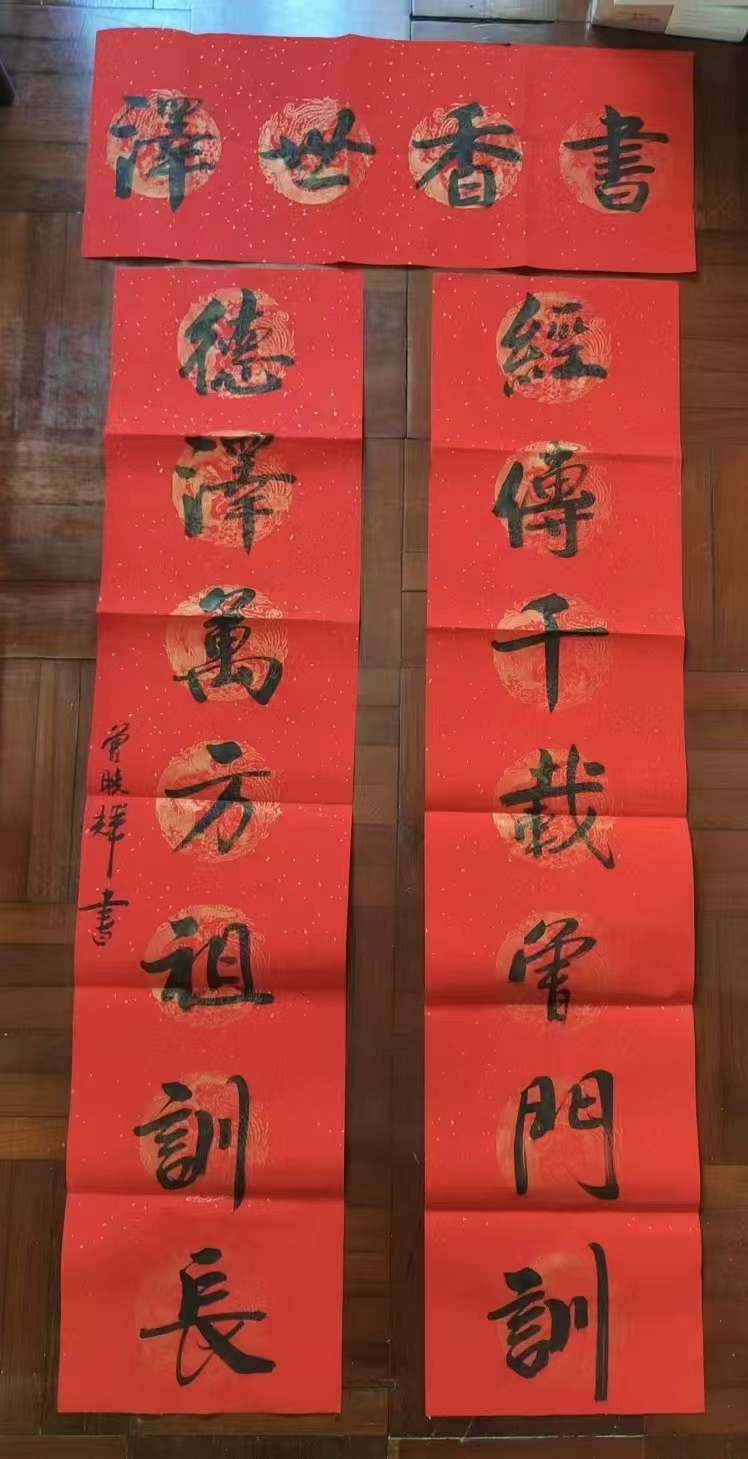 書香世澤
經傳千載曾門訓
德澤萬方祖訓長
曾映輝書